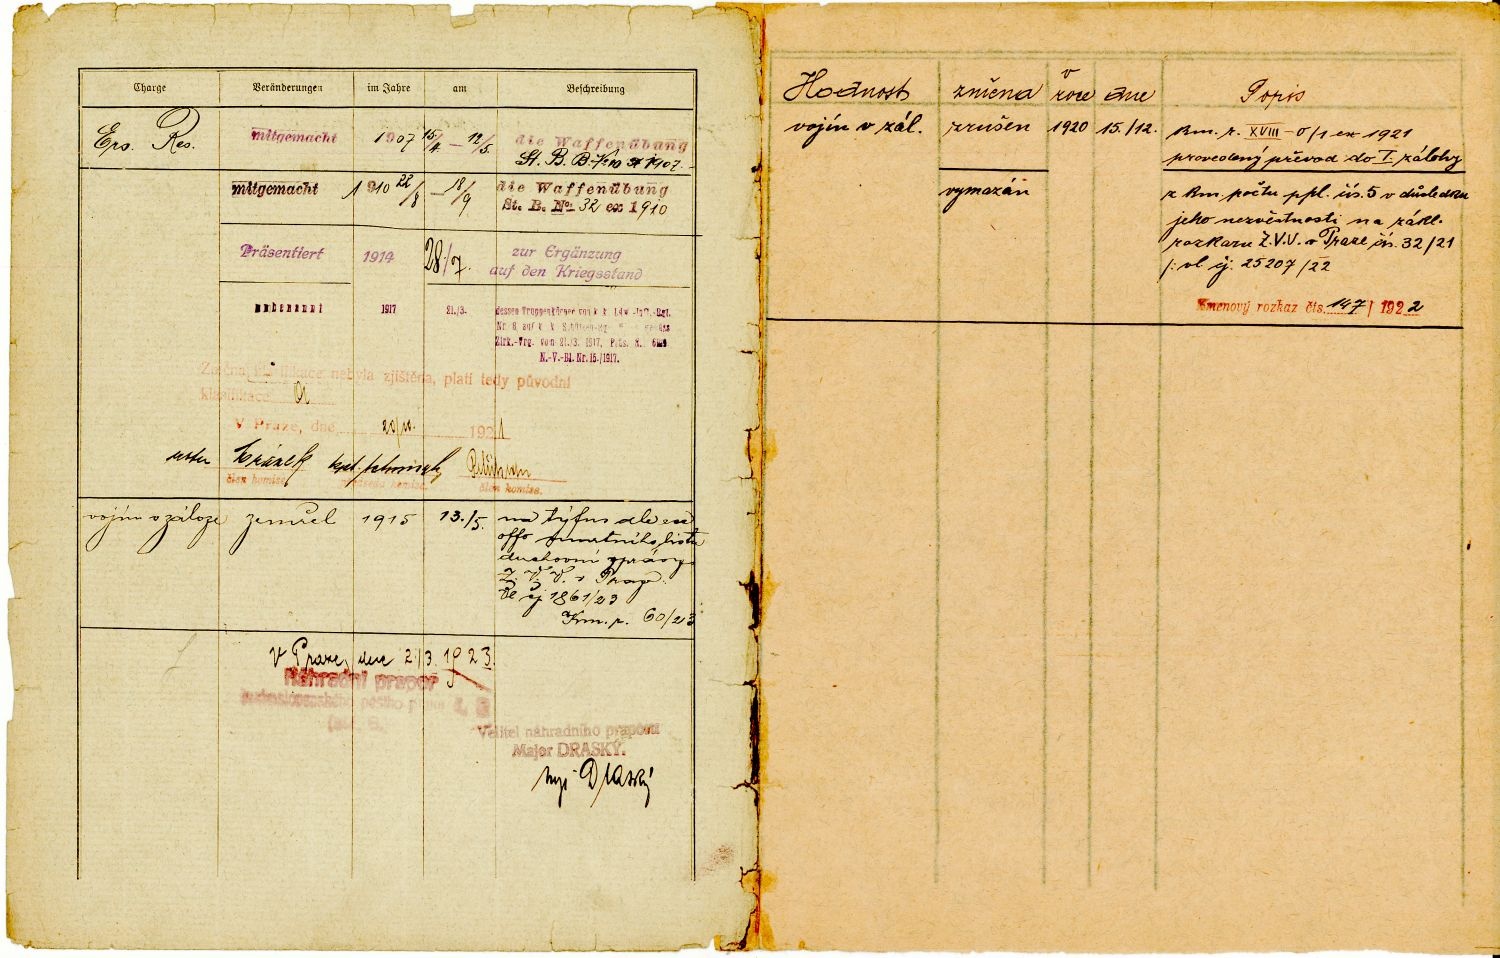 Charge Veränderungen im Jahre am Beschreibung
Ers. Res. mitgemacht 1907 15/4. – 12/5. die Waffenübung
St. B. B. No ex 1907.
mitgemacht 1910 22/8 – 18/9 die Waffenübung
St. B. No: 32 ex 1910
Präsentiert 1914 28./7. zur Ergänzung
auf den Kriegsstand
1917 21./3. dessen Truppenkörper von k. k. Ldw.-Inf.-Rgt.
Nr. 8 auf k. k. Schützen-Rg
Zirk.-Vrg. von 21./3. 1917, Präs. N.
N.-V.-Bl. Nr. 15./1917.
nebyla zjištěna, platí tedy původní
klasifikace a
V Praze, dne 1921
kpt.
člen komise. předseda komise. člen komise.
vojín v záloze zemřel 1915 13./5. na týfus dle ex
offo úmrtního listu
duchovní správy
Z. V. V. v Praze.
čj 1861/23
Km. r. 60/23
V Praze, dne 2./3. 1923.
Náhradní prapor
československého pěšího pluku č. 5
Velitel náhradního praporu
Major DRASKÝ.
Draský
Hodnost změna v roce dne Popis
vojín v zál. zrušen 1920 15./12. Km. r. XVIII – 0/1 ex 1921
provedený převod do I. zálohy
vymazán z km. počtu p. pl. čís. 5 v důsledku
jeho nezvěstnosti na zákl.
rozkazu Z.V.V. v Praze čís. 32/21
čj. 25207/22
Kmenový rozkaz čís. 147/1922